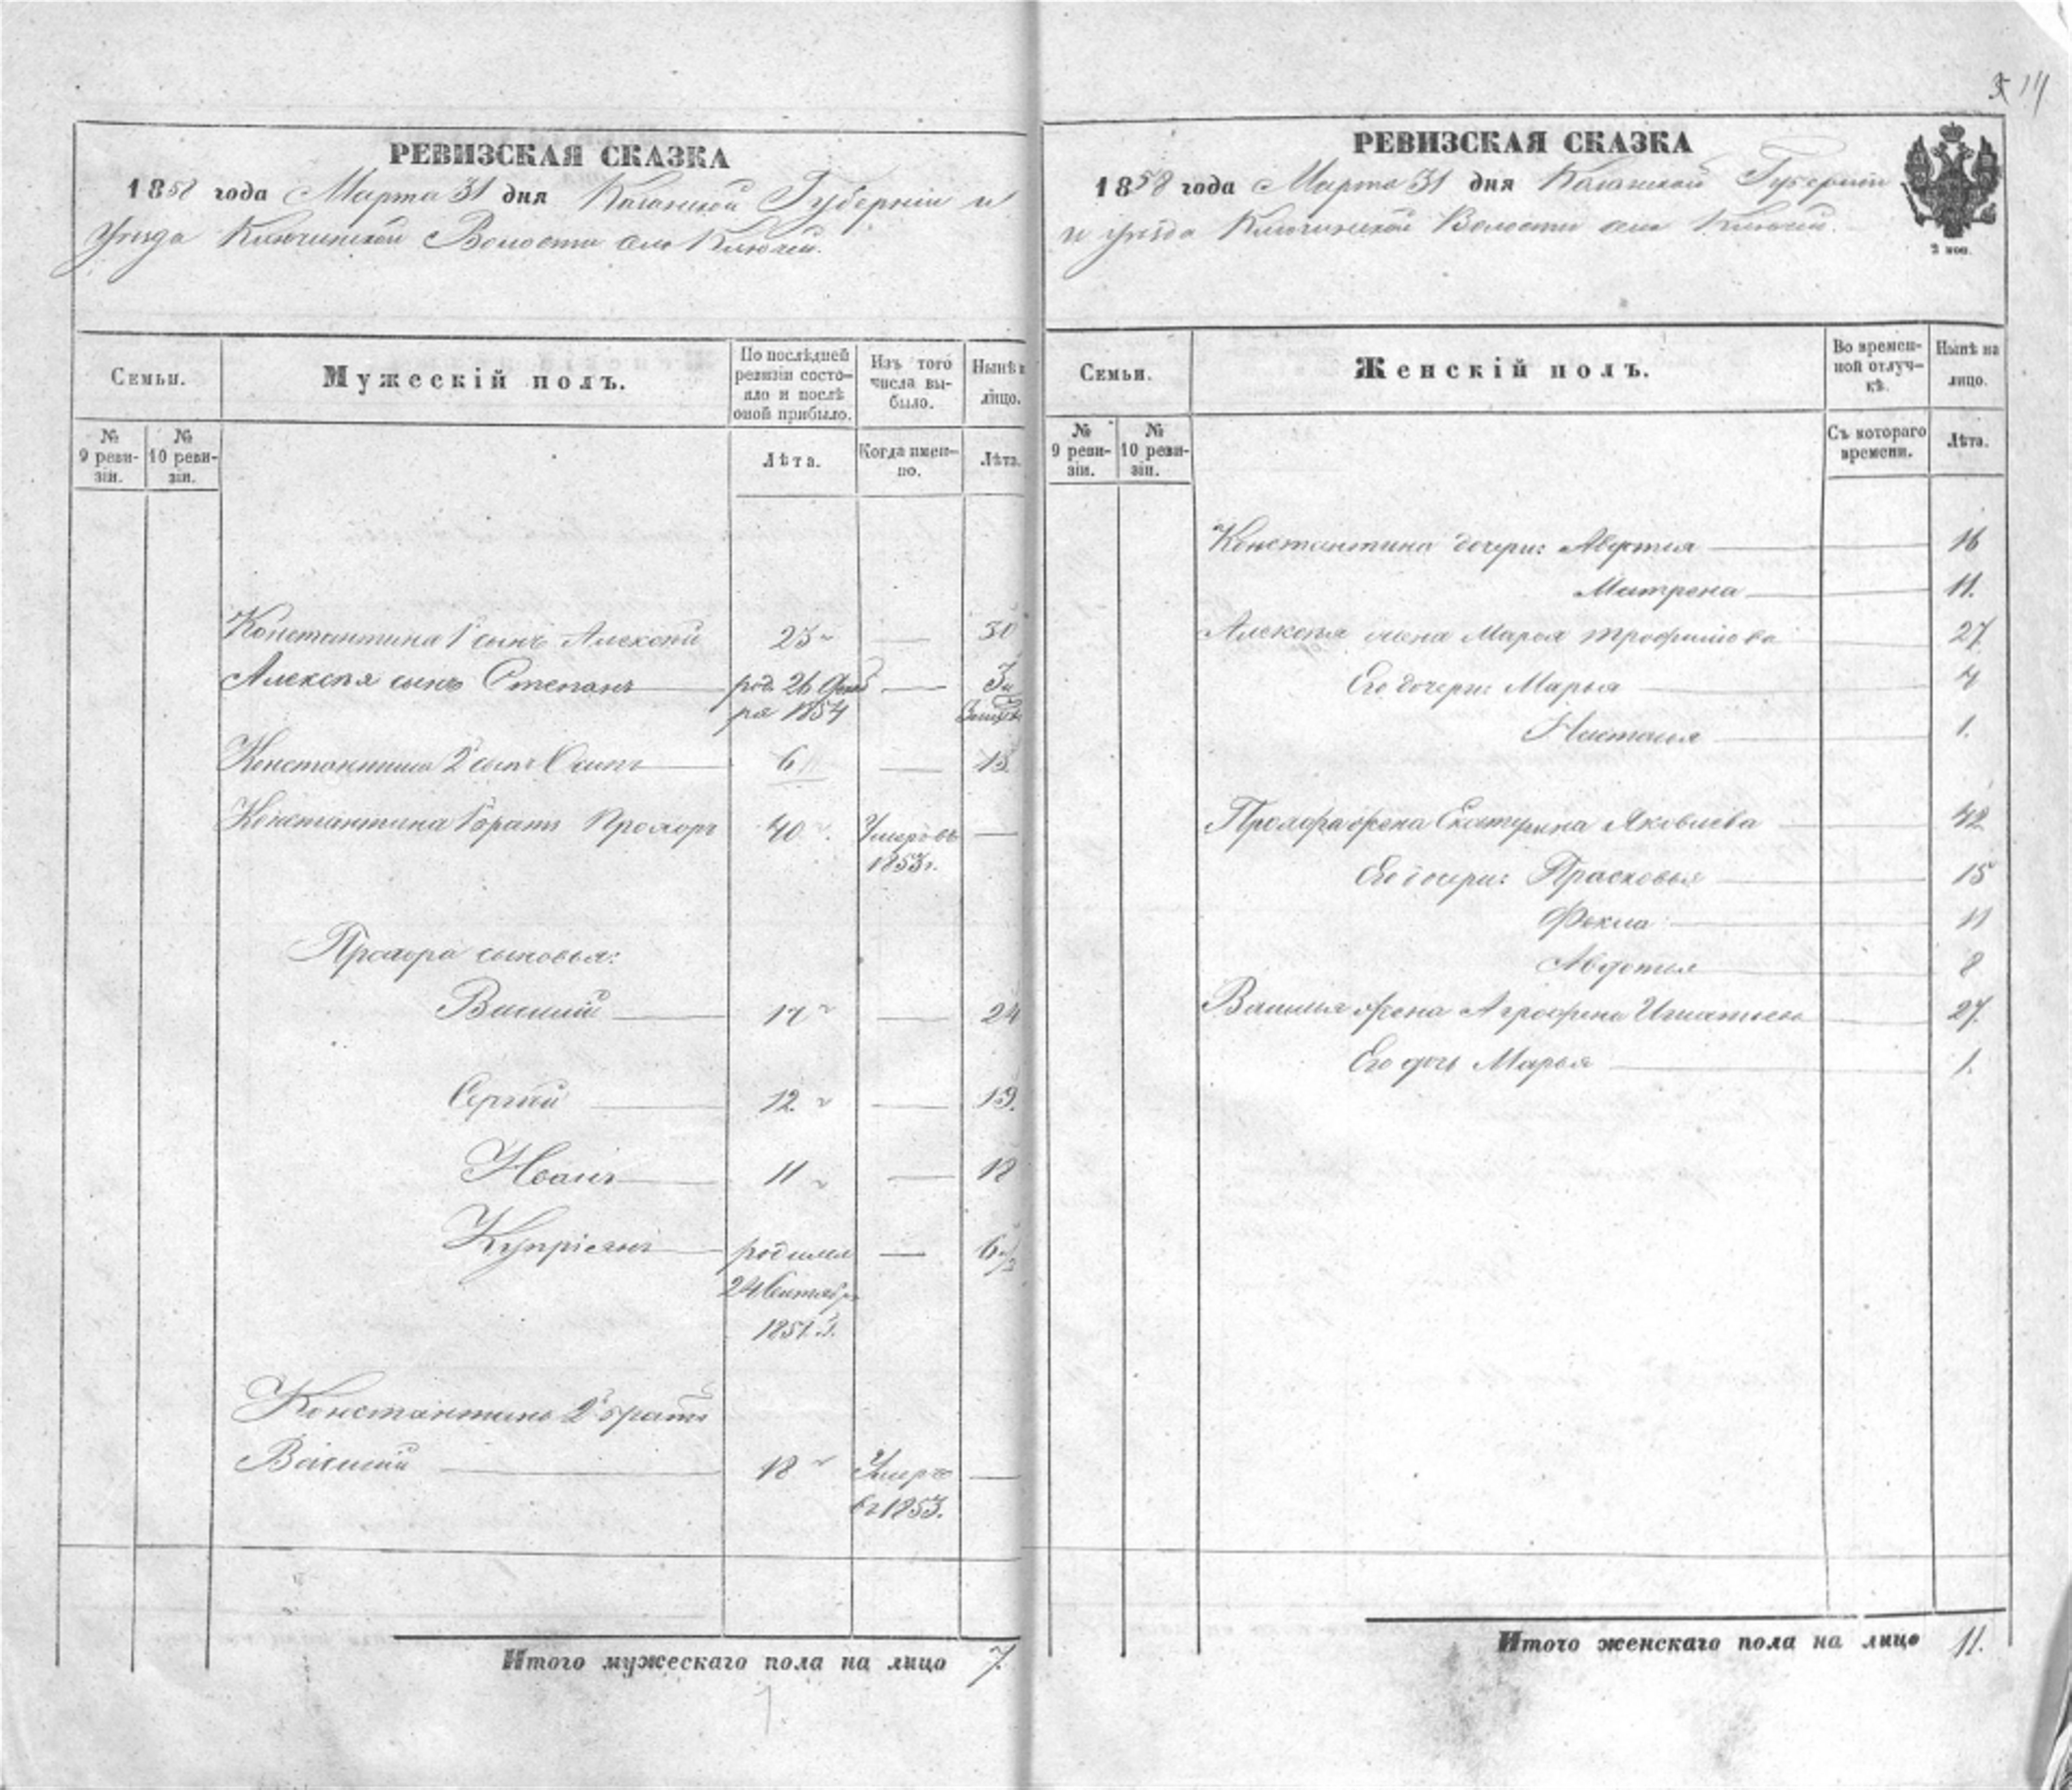 РЕВИЗСКАЯ СКАЗКА
1858 года Марта 31 дня Казанской Губерніи и
уѣзда Ключинской Волости села Ключей.
Семьи.
Мужескій полъ.
По послѣдней ревизіи состояло и послѣ оной прибыло.
Изъ того числа выбыло.
Нынѣ на лицо.
№ 9 ревизіи.
№ 10 ревизіи.
Лѣта.
Когда именно.
Лѣта.
Константина 1й сынъ Алексѣй 23 — 30
Алексѣя сынъ Степанъ род. 26 — 3
ря 1854
Константина 2й сынъ Осипъ 6 — 13
Константина 1й братъ Прохоръ 40 Умеръ въ —
1853 г.
Прохора сыновья:
Василій 17 — 24
Сергѣй 12 — 19.
Иванъ 11 — 18
Купріянъ родился — 6 1/2
24 Сентября
1851 г.
Константина 2й братъ
Василій 18 Умеръ —
въ 1853.
Итого мужескаго пола на лицо 7.
5 14
РЕВИЗСКАЯ СКАЗКА
1858 года Марта 31 дня Казанской Губерніи
и уѣзда Ключинской Волости села Ключей.
2 коп.
Семьи.
Женскій полъ.
Во временной отлучкѣ.
Нынѣ на лицо.
№ 9 ревизіи.
№ 10 ревизіи.
Съ котораго времени.
Лѣта.
Константина дочери: Авдотья 16
Матрена 11.
Алексѣя жена Марья Трофимова 27
Его дочери: Марья 4
Настасья 1.
Прохора жена Екатерина Яковлева 42
Его дочери: Прасковья 15
Фекла 11
Авдотья 8
Василья жена Агрофена Игнатьева 27.
Его дочь Марья 1.
Итого женскаго пола на лицо 11.